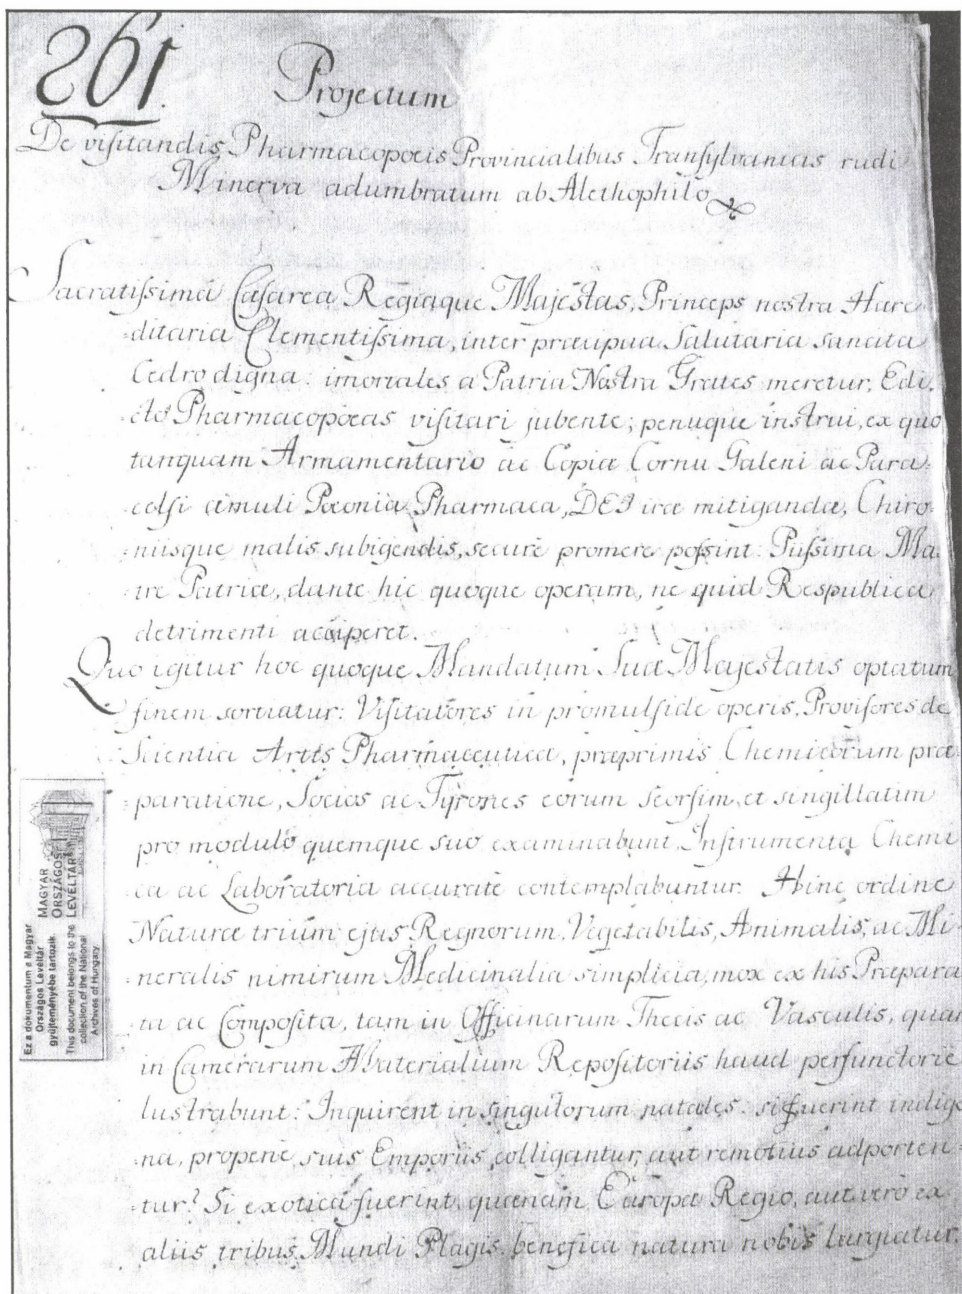 261.
Projectum
De visitandis Pharmacopoeis Provincialibus Transylvanicis rudi
Minerva adumbratum ab Alethophilo
Sacratissima Caesarea Regiaque Majestas, Princeps nostra Haere
ditaria Clementissima, inter praecipua Salutaria sancita
Cedro digna: imortales a Patria Nostra Grates meretur, Edi,
cto Pharmacopoeas visitari jubente; penuque instrui, ex quo
tanquam Armamentario ac Copiae Cornu Galeni ac Para:
:celsi aemuli Poeonia Pharmaca, DEI irae mitigandae, Chiro
:niisque malis subigendis, secure promere possint: Piissima Ma:
:tre Patriae, dante hic quoque operam, ne quid Respublica
detrimenti acciperet.
Quo igitur hoc quoque Mandatum Suae Majestatis optatum
finem sortiatur: Visitatores in promulside operis, Provisores de
Scientia Artis Pharmaceuticae, praeprimis Chemicorum prae
:paratione, Socios ac Tyrones eorum seorsim et singillatim
pro modulo quemque suo examinabunt. Instrumenta Chemi
ca ac Laboratoria accurate contemplabuntur. Hinc ordine
Naturae trium ejus Regnorum, Vegetabilis, Animalis, ac Mi:
neralis nimirum Medicinalia simplicia, mox ex his Praepara
ta ac Composita, tam in Officinarum Thecis ac Vasculis, quam
in Camerarum Materialium Repositoriis haud perfunctorie
lustrabunt: Inquirent in singulorum natales: si fuerint indige
:na, propene suis Emporiis colligantur, aut remotius adporten:
:tur? Si exotica fuerint, quaenam Europae Regio, aut vero ex
aliis tribus Mundi Plagis benefica natura nobis largiatur.
Ez a dokumentum a Magyar
Országos Levéltár
gyűjteményébe tartozik.
This document belongs to the
collection of the National
Archives of Hungary
MAGYAR
ORSZÁGOS
LEVÉLTÁR